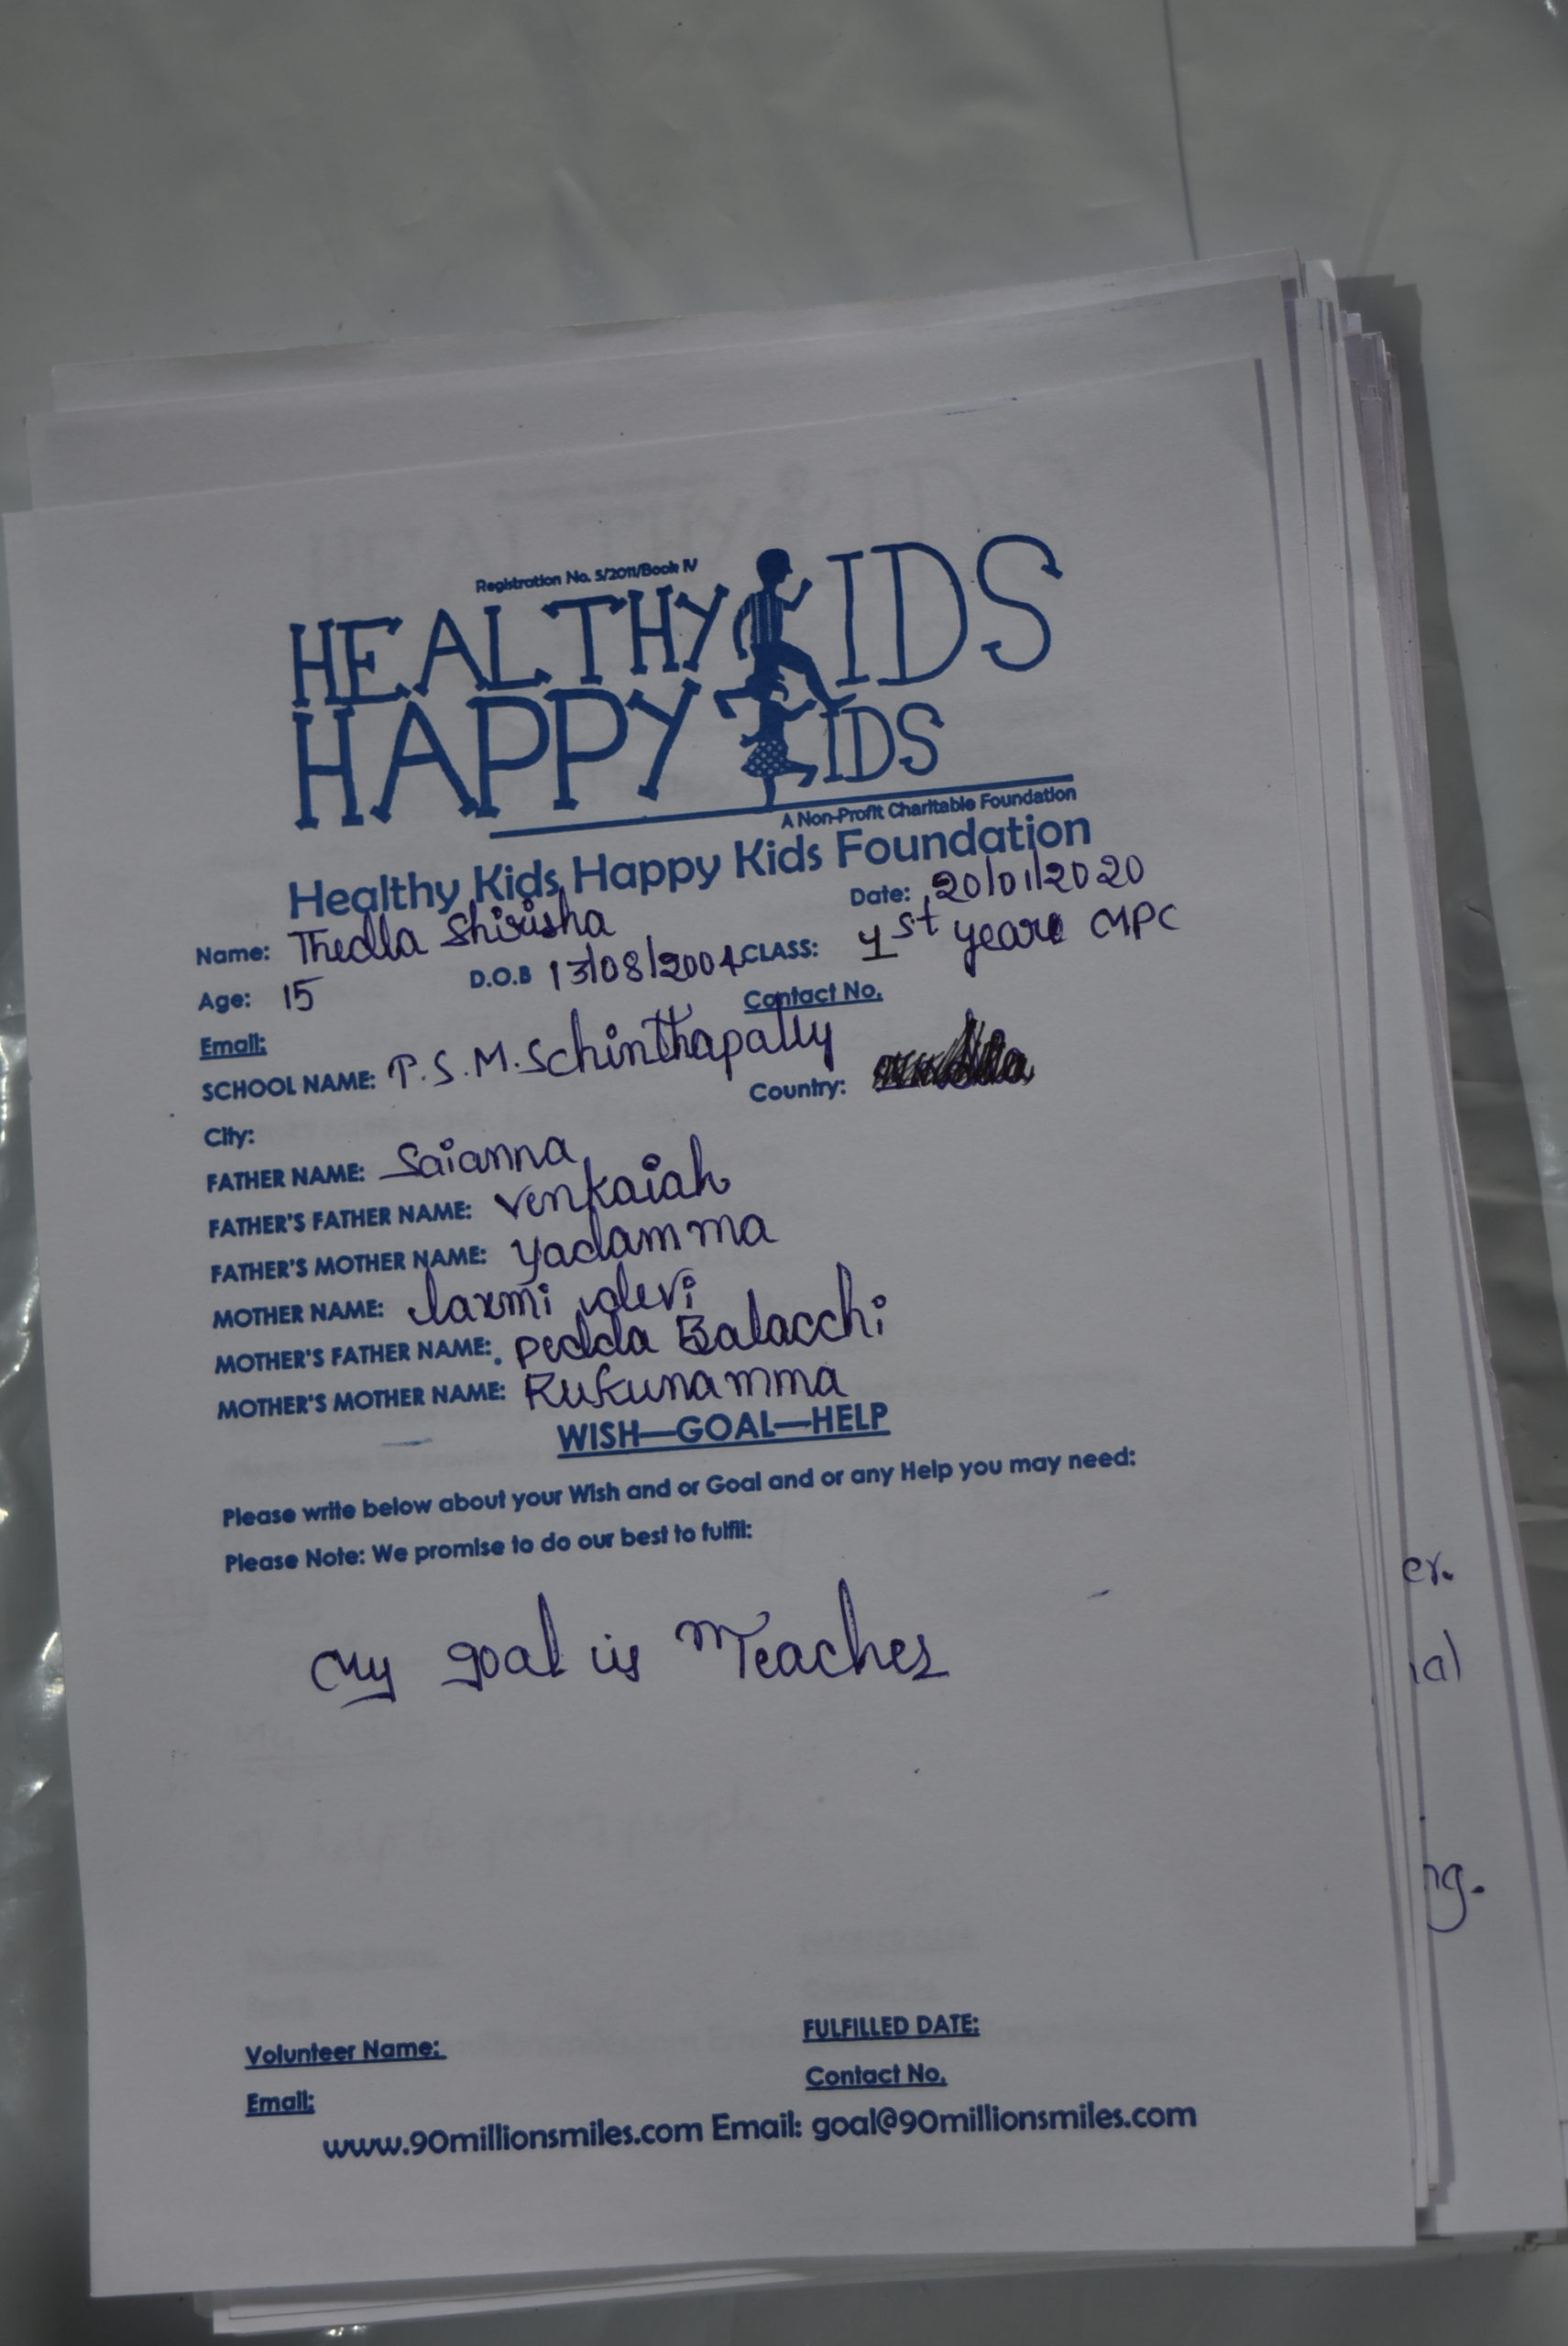 Registration No. 5/2011/Book IV
HEALTHY KIDS
HAPPY KIDS
A Non-Profit Charitable Foundation
Healthy Kids Happy Kids Foundation
Date: 20/01/2020
Name: Thedla Shirisha
Age: 15 D.O.B 13/08/2004 CLASS: 1st year MPC
Email: Contact No.
SCHOOL NAME: T.S.M.S chinthapally
City: Country:
FATHER NAME: Saianna
FATHER'S FATHER NAME: venkaiah
FATHER'S MOTHER NAME: yadamma
MOTHER NAME: laxmi devi
MOTHER'S FATHER NAME: pedda Balacchi
MOTHER'S MOTHER NAME: Rukunamma
WISH—GOAL—HELP
Please write below about your Wish and or Goal and or any Help you may need:
Please Note: We promise to do our best to fulfil:
My goal is Teacher
er.
al
ng.
Volunteer Name: FULFILLED DATE:
Email: Contact No.
www.90millionsmiles.com Email: goal@90millionsmiles.com